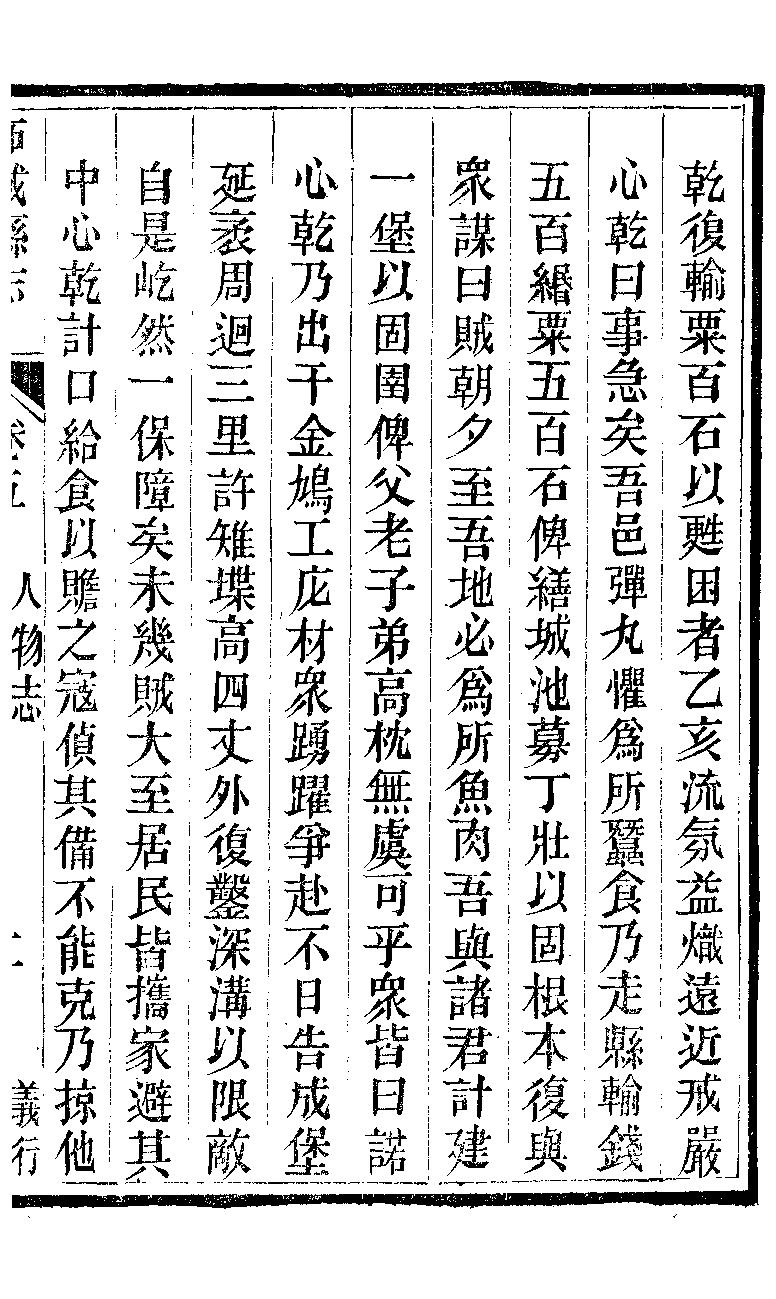 乾復輸粟百石以甦困者乙亥流氛益熾遠近戒嚴
心乾曰事急矣吾邑彈丸懼為所蠶食乃走縣輸錢
五百緡粟五百石俾繕城池募丁壯以固根本復與
衆謀曰賊朝夕至吾地必為所魚肉吾與諸君計建
一堡以固圉俾父老子弟高枕無虞可乎衆皆曰諾
心乾乃出千金鳩工庀材衆踴躍爭赴不日告成堡
延袤周迴三里許雉堞高四丈外復鑿深溝以限敵
自是屹然一保障矣未幾賊大至居民皆攜家避其
中心乾計口給食以贍之寇偵其備不能克乃掠他
城縣志 卷五 人物志 義行